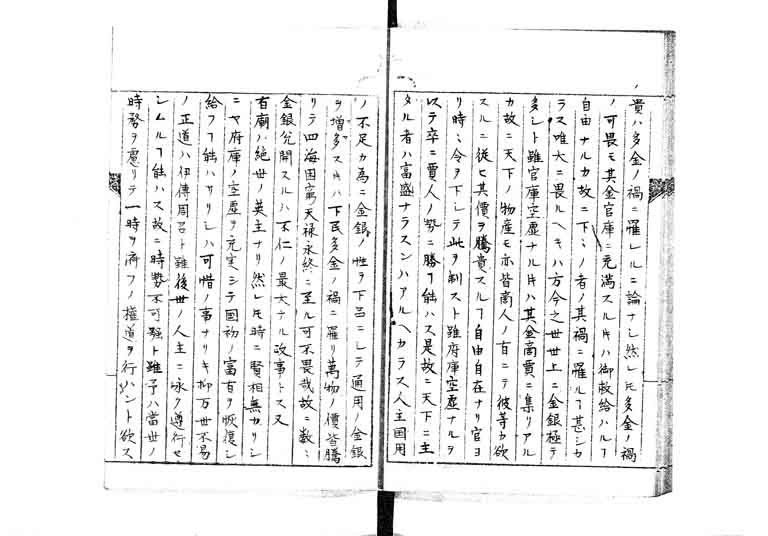 ノ貴ハ多金ノ禍ニ罹レルニ論ナシ然レ𪜈多金ノ禍
ノ可畏モ其金官庫ニ充満スル𪜈ハ御救給ハルヿ
自由ナルカ故ニ下々ノ者ノ其禍ニ罹ルヿ甚シカ
ラス唯大ニ畏ルヘキハ方今之世世上ニ金銀極テ
多シト雖官庫空虚ナル𪜈ハ其金商賈ニ集リアル
カ故ニ天下ノ物産モ亦皆商人ノ有ニテ彼等カ欲
スルニ従ヒ其價ヲ騰貴スルヿ自由自在ナリ官ヨ
リ時々令ヲ下シテ此ヲ制スト雖府庫空虚ナルヲ
以テ卒ニ賈人ノ勢ニ勝ヿ能ハス是故ニ天下ニ主
タル者ハ富盛ナラスンハアルヘカラス人主国用
ノ不足カ為ニ金銀ノ性ヲ下品ニシテ通用ノ金銀
ヲ増多スレハ下民多金ノ禍ニ罹リ萬物ノ價皆騰
リテ四海困窮天禄永終ニ至ル可不畏哉故ニ数々
金銀吹開スルハ不仁ノ最大ナル故事トス又
有廟ハ絶世ノ英主ナリ然レ𪜈時ニ賢相無カリシ
ニヤ府庫ノ空虚ヲ充実シテ国初ノ富有ヲ恢復シ
給フヿ能ハサリシハ可惜ノ事ナリキ抑万世不易
ノ正道ハ伊傅周召ト雖後世ノ人主ニ咏ク遵行セ
シムルヿ能ハス故ニ時勢不可強ト雖予ハ當世ノ
時務ヲ慮リテ一時ヲ済フノ権道ヲ行ハント欲ス